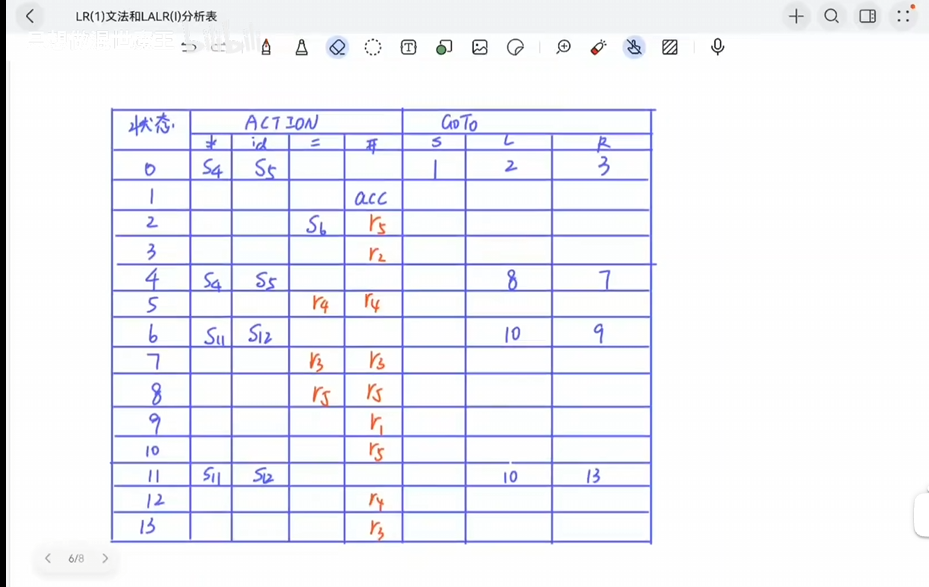 LR(1)文法和LALR(I)分析表
状态 ACTION GOTO
* id = # S L R
0 S4 S5 1 2 3
1 acc
2 S6 r5
3 r2
4 S4 S5 8 7
5 r4 r4
6 S11 S12 10 9
7 r3 r3
8 r5 r5
9 r1
10 r5
11 S11 S12 10 13
12 r4
13 r3
6/8